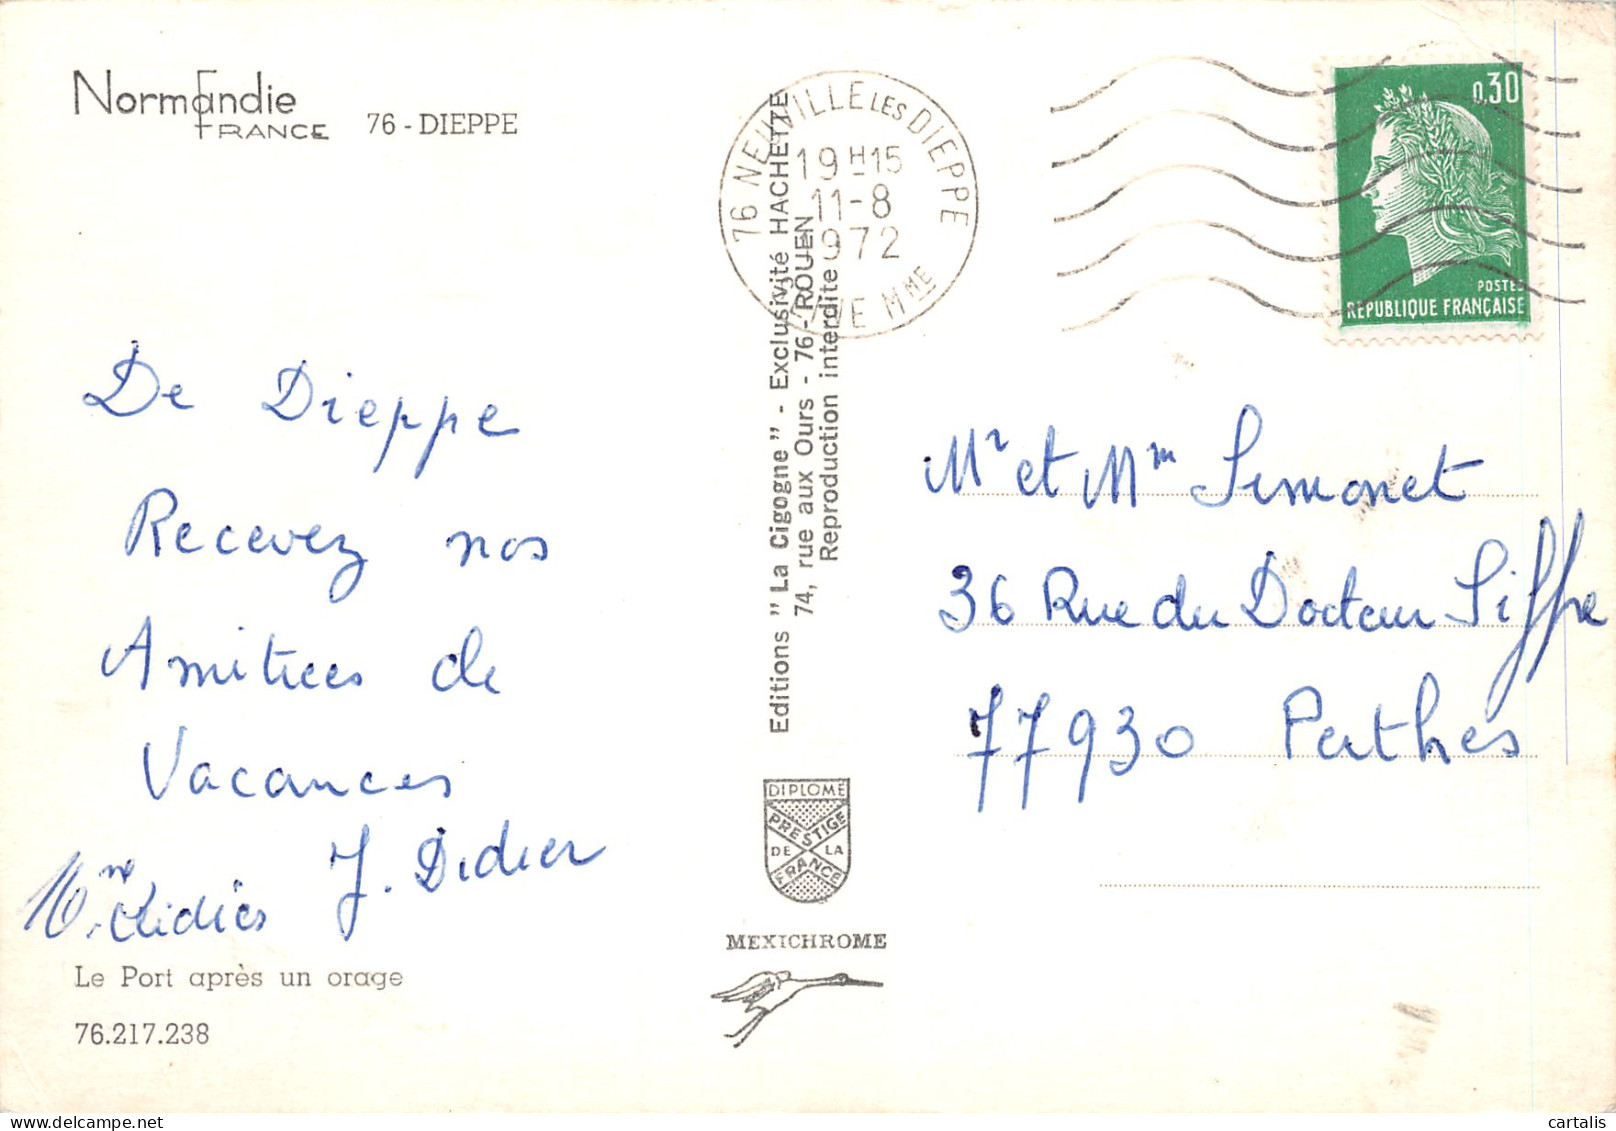 Normandie
FRANCE
76 - DIEPPE
De Dieppe
Recevez nos
Amitiees de
Vacances
J. Didier
Le Port après un orage
76.217.238
Editions "La Cigogne" - Exclusivité HACHETTE
74, rue aux Ours - 76 - ROUEN
Reproduction interdite
DIPLOME
PRESTIGE
DE LA
FRANCE
MEXICHROME
76 NEUVILLE LES DIEPPE
19 H 15
11-8
1972
SEINE MME
0,30
POSTES
REPUBLIQUE FRANÇAISE
Mr et Mm Simonet
36 Rue du Docteur Siffre
77930 Perthes
cartalis